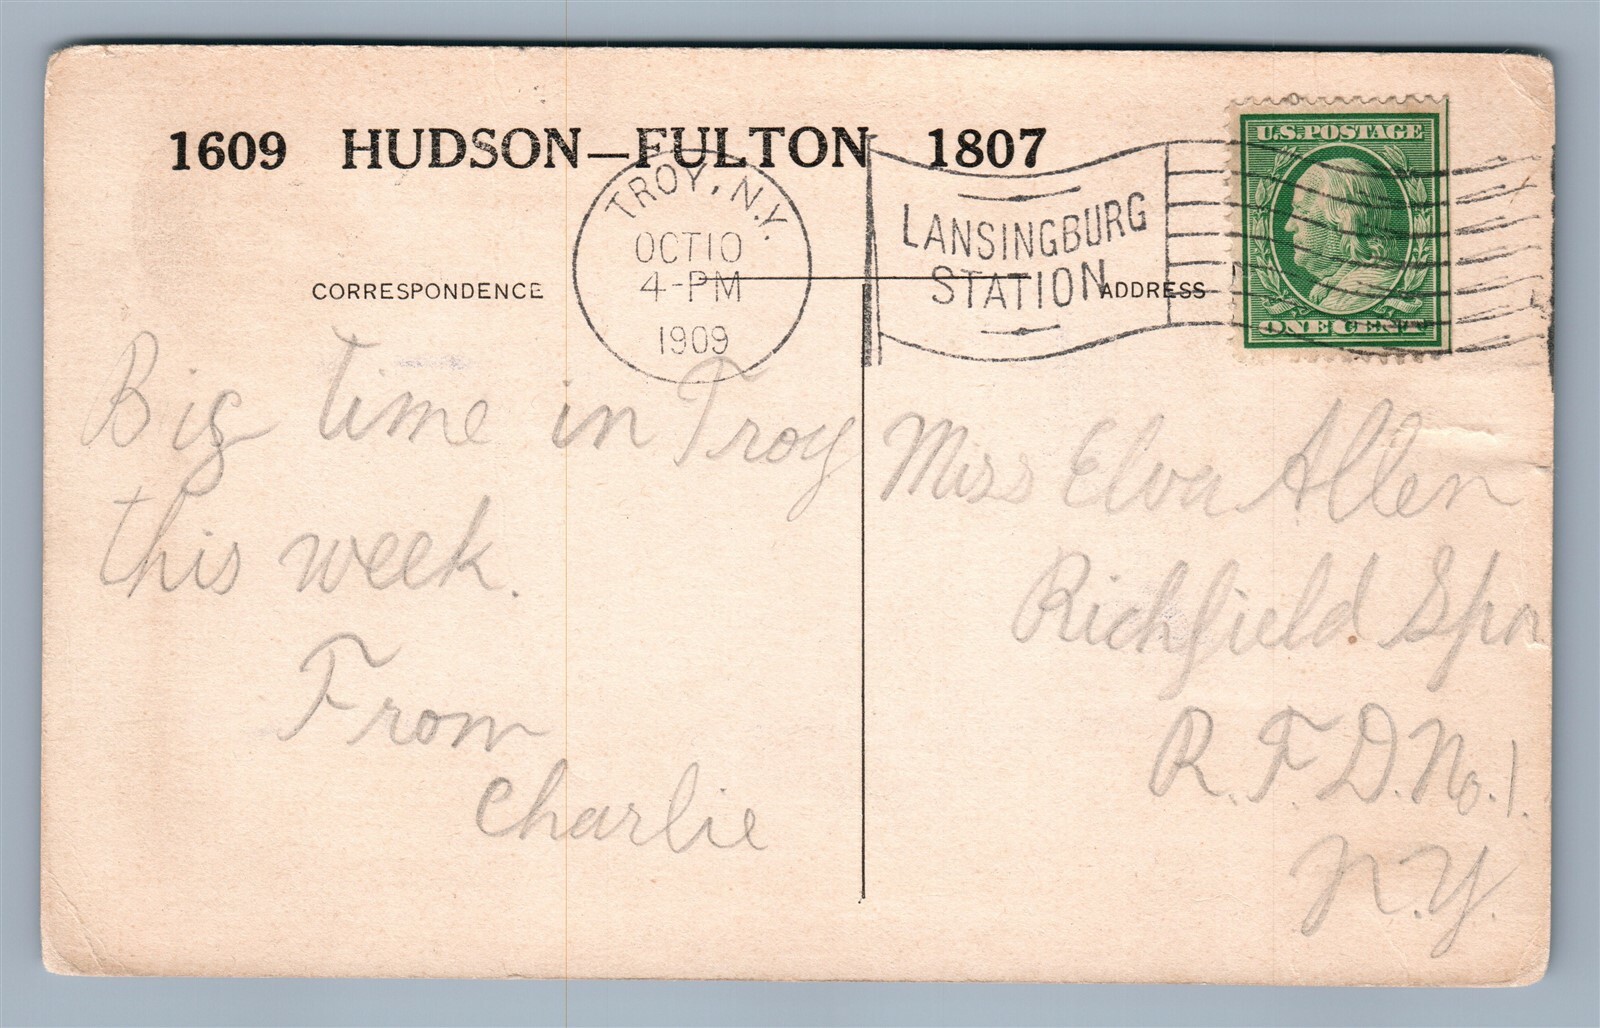 1609 HUDSON—FULTON 1807
TROY, N.Y.
OCT 10
4-PM
1909
LANSINGBURG
STATION
U.S. POSTAGE
ONE CENT
CORRESPONDENCE
ADDRESS
Big time in Troy
this week.
From
Charlie
Miss Elva Allen
Richfield Spr
R.F.D. No. 1.
N.Y.